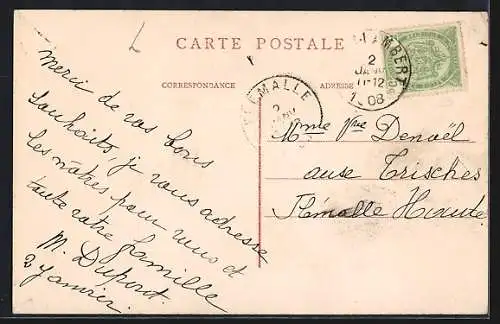 CARTE POSTALE
CORRESPONDANCE
ADRESSE
LAMBERT
2
JANV
11-12
1908
EMALLE
2
Merci de vos bons
souhaits, je vous adresse
les nôtres pour vous et
toute votre famille
M. Dupont.
2 Janvier.
Mme Vve Denoël
aux Trisches
Flémalle Haute